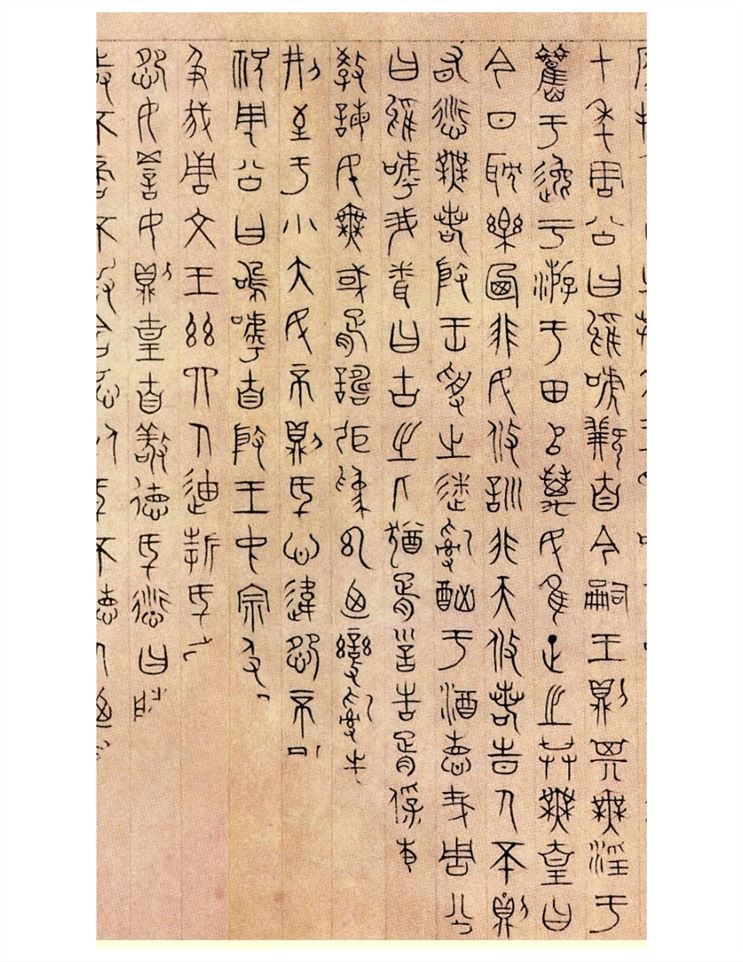 十年周公曰烏虖繼自今嗣王則其無淫于
觀于逸于游于田以萬民惟正之共無皇曰
今日耽樂乃非民攸訓非天攸若時人丕則
有愆無若殷王受之迷亂酗于酒德哉周公
曰烏虖我聞曰古之人猶胥訓告胥保惠
教誨民無或胥譸乃變亂
刑至于小大民否則厥心違怨否
祝周公曰嗚呼自殷王中宗及
及我周文王茲四人迪哲厥
怨女詈女則皇自敬德厥愆曰朕
時不啻不敢含怒厥不聽人乃